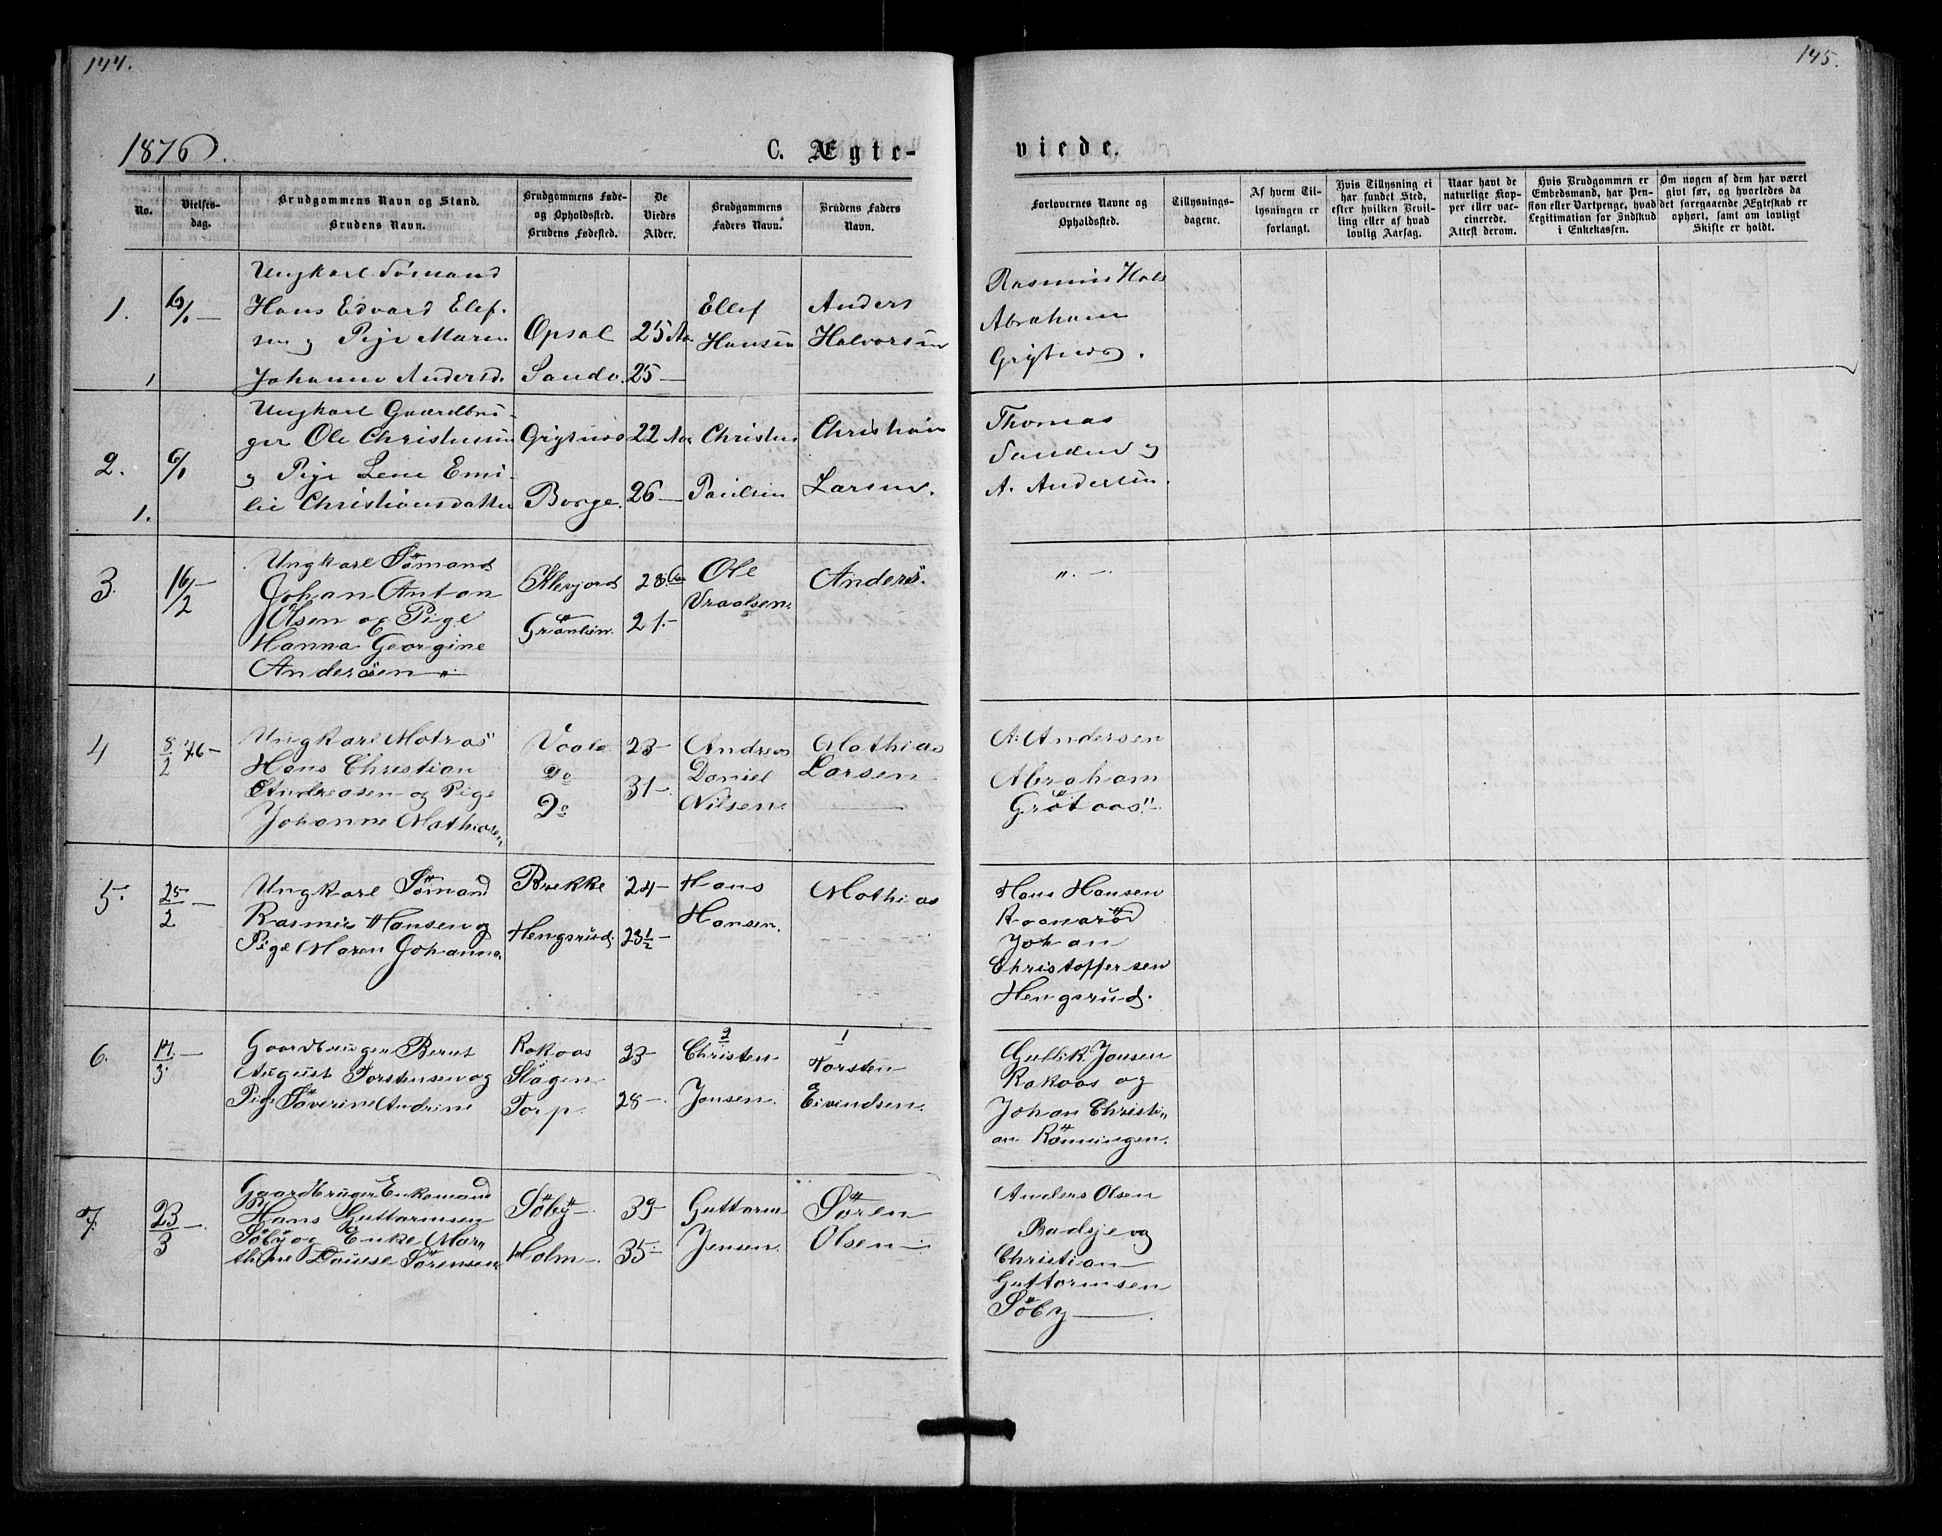 144.
145.
1876.
C. Ægte-
viede.
No.
Vielses-
dag.
Brudgommens Navn og Stand.
Brudens Navn.
Brudgommens Føde-
og Opholdssted.
Brudens Fødested.
De
Viedes
Alder.
Brudgommens
Faders Navn.
Brudens Faders
Navn.
Forlovernes Navne og
Opholdssted.
Tillysnings-
dagene.
Af hvem Til-
lysningen er
forlangt.
Hvis Tillysning ei
har fundet Sted,
efter hvilken Bevil-
ling eller af hvad
lovlig Aarsag.
Naar havt de
naturlige Kop-
per eller vac-
cinerede.
Attest derom.
Hvis Brudgommen er
Embedsmand, har Pen-
sion eller Vartpenge, hvad
Legitimation for Indskud
i Enkekassen.
Om nogen af dem har været
gift før, og hvorledes da
det foregaaende Ægteskab er
ophørt, samt om lovligt
Skifte er holdt.
1.
6/1 —
Ungkarl Sømand
Hans Edvard Elef-
sen og Pige Maren
Johanne Andersd.
Opsal
Sando.
25 Aar
25 —
Ellef
Hansen
Anders
Halvorsen
Rasmus Hals
Abraham
1
2.
6/1
Ungkarl Gaardbru-
ger Ole Christensen
og Pige Lene Emi-
lie Christiansdatter
Borge.
22 Aar
26 —
Christen
Paulsen
Christian
Larsen.
Thomas
Sanden og
A. Andersen.
1.
3.
16/2 —
Ungkarl Sømand
Johan Anton
Olsen og Pige
Hanna Georgine
Andersen "
Klevjord
28 Aar
21. —
Ole
Vraalsen.
Anders.
". —
4
8/2 76 —
Ungkarl Matros
Hans Christian
Andreasen og Pige
Johanne Mathiasen
Vaale
do
Do
23 —
31 —
Andreas
Daniel
Nilsen.
Mathias
Larsen
A. Andersen
Abraham
5.
25/2 —
Ungkarl Sømand
Rasmus Hansen og
Pige Maren Johanne.
Brekke
Hengsrud.
24 —
23½ —
Hans
Hansen.
Mathias
Hans Hansen
Johan
Christoffersen
Hengsrud.
6.
17/3 —
Gaardbruger Bernt
August Torstensen og
Pige Søverine Andrine
Rakaas
Slagen
Torp.
23 —
28 —
2
Christen
Jansen.
1
Torsten
Eivindsen.
Gullik Jansen
Rakaas og
Johan Christi-
an Rønningen.
7.
23/3 —
Gaardbruger Enkemand
Hans Guttormsen
Søby og Enke Mar-
thine Louise Sørensen
Søby —
Holm —
39 —
35 —
Guttorm
Jensen.
Søren
Olsen —
Anders Olsen
Christian
Guttormsen
Søby —